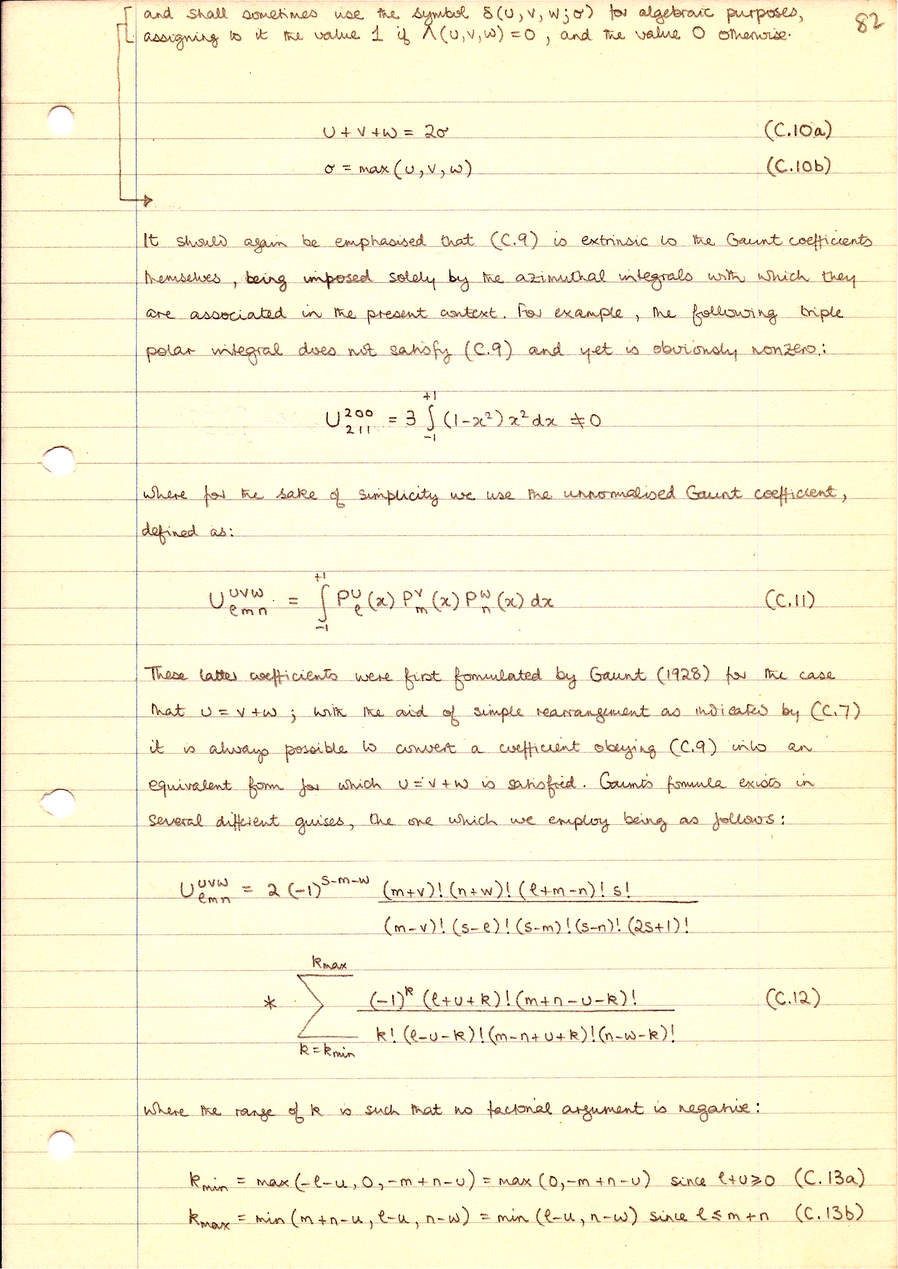 82
and shall sometimes use the symbol δ(u,v,w;σ) for algebraic purposes,
assigning to it the value 1 if Λ(u,v,w) = 0, and the value 0 otherwise.
u + v + w = 2σ (C.10a)
σ = max(u,v,w) (C.10b)
It should again be emphasised that (C.9) is extrinsic to the Gaunt coefficients
themselves, being imposed solely by the azimuthal integrals with which they
are associated in the present context. For example, the following triple
polar integral does not satisfy (C.9) and yet is obviously nonzero:
U^{200}_{211} = 3 ∫_{-1}^{+1} (1-x²) x² dx ≠ 0
where for the sake of simplicity we use the unnormalised Gaunt coefficient,
defined as:
U^{uvw}_{ℓmn} = ∫_{-1}^{+1} P^u_ℓ(x) P^v_m(x) P^w_n(x) dx (C.11)
These latter coefficients were first formulated by Gaunt (1928) for the case
that u = v + w ; with the aid of simple rearrangement as indicated by (C.7)
it is always possible to convert a coefficient obeying (C.9) into an
equivalent form for which u = v + w is satisfied. Gaunt's formula exists in
several different guises, the one which we employ being as follows:
U^{uvw}_{ℓmn} = 2 (-1)^{s-m-w} (m+v)! (n+w)! (ℓ+m-n)! s!
(m-v)! (s-ℓ)! (s-m)! (s-n)! (2s+1)!
k_max
* ∑ (-1)^k (ℓ+u+k)! (m+n-u-k)! (C.12)
k! (ℓ-u-k)! (m-n+u+k)! (n-w-k)!
k = k_min
where the range of k is such that no factorial argument is negative:
k_min = max(-ℓ-u, 0, -m+n-u) = max(0, -m+n-u) since ℓ+u ≥ 0 (C.13a)
k_max = min(m+n-u, ℓ-u, n-w) = min(ℓ-u, n-w) since ℓ ≤ m+n (C.13b)